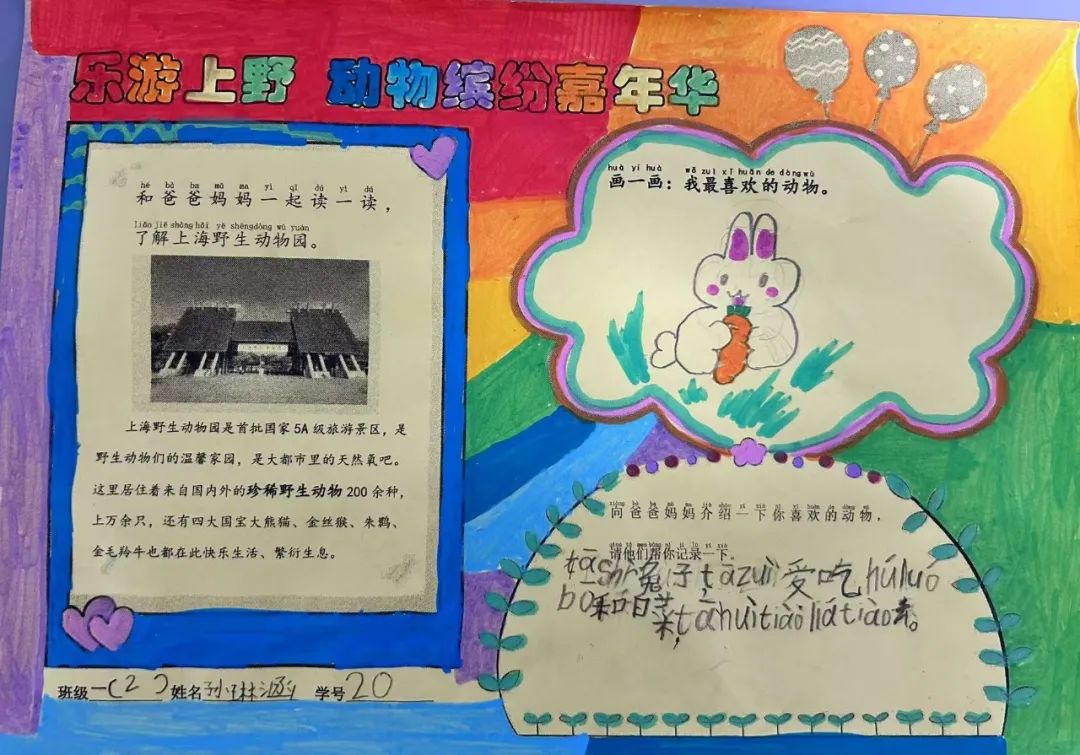 乐游上野 动物缤纷嘉年华
hé bà ba mā ma yì qǐ dú yì dú
和爸爸妈妈一起读一读，
liǎo jiě shàng hǎi yě shēng dòng wù yuán
了解上海野生动物园。
上海野生动物园是首批国家5A级旅游景区，是
野生动物们的温馨家园，是大都市里的天然氧吧。
这里居住着来自国内外的珍稀野生动物200余种，
上万余只，还有四大国宝大熊猫、金丝猴、朱鹮、
金毛羚牛也都在此快乐生活、繁衍生息。
班级一(2) 姓名孙琳涵 学号20
huà yi huà wǒ zuì xǐ huān de dòng wù
画一画：我最喜欢的动物。
向爸爸妈妈介绍一下你喜欢的动物，
请他们帮你记录一下。
shì兔子，tāzuì爱吃húluó
bo和白菜，tāhuìtiàoláitiào去。